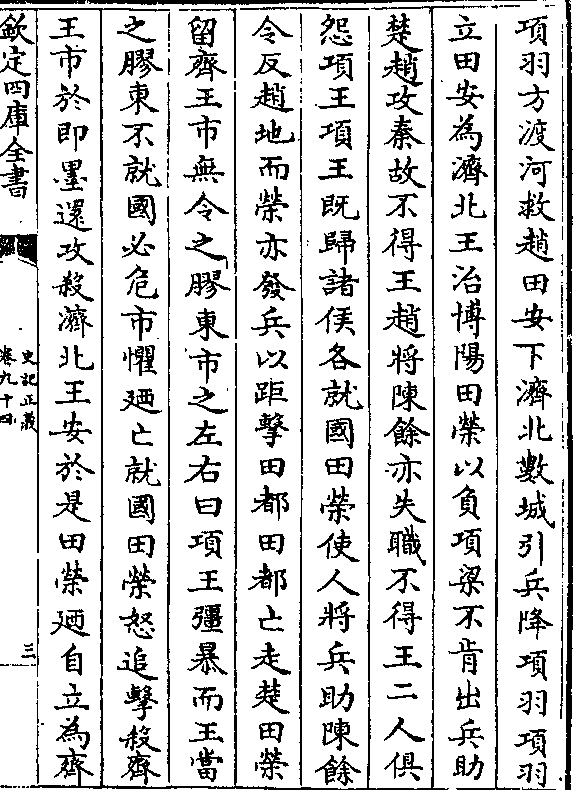 項羽方渡河救趙田安下濟北數城引兵降項羽項羽
立田安為濟北王治博陽田榮以負項梁不肯出兵助
楚趙攻秦故不得王趙將陳餘亦失職不得王二人俱
怨項王項王既歸諸侯各就國田榮使人將兵助陳餘
令反趙地而榮亦發兵以距擊田都田都亡走楚田榮
留齊王市無令之膠東市之左右曰項王彊暴而王當
之膠東不就國必危市懼廼亡就國田榮怒追擊殺齊
王市於即墨還攻殺濟北王安於是田榮廼自立為齊
欽定四庫全書
史記正義
卷九十四
三